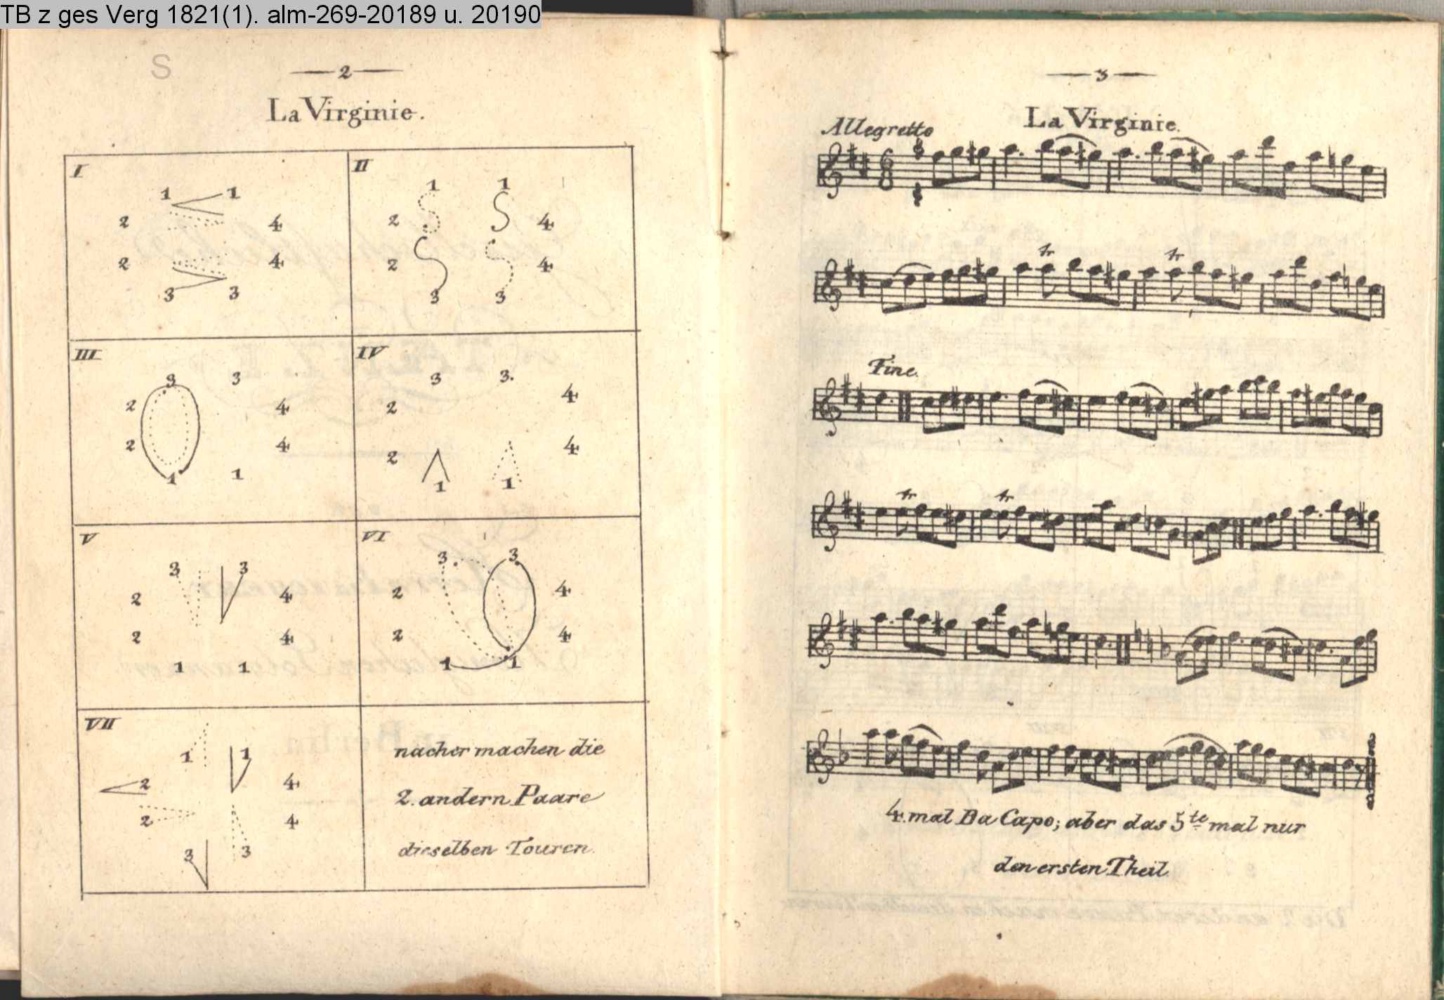 TB z ges Verg 1821(1). alm-269-20189 u. 20190
S
2
La Virginie.
I
1 1
2 4
2 4
3 3
II
1 1
2 4
2 4
3 3
III
3 3
2 4
2 4
1 1
IV
3 3.
2 4
2 4
1 1
V
3 3
2 4
2 4
1 1
VI
3. 3
2 4
2 4
1 1
VII
1 1
2 4
2 4
3 3
nacher machen die
2. andern Paare
dieselben Touren.
3
La Virginie.
Allegretto
6
8
tr tr
Fine.
tr tr
4. mal Da Capo; aber das 5te mal nur
den ersten Theil